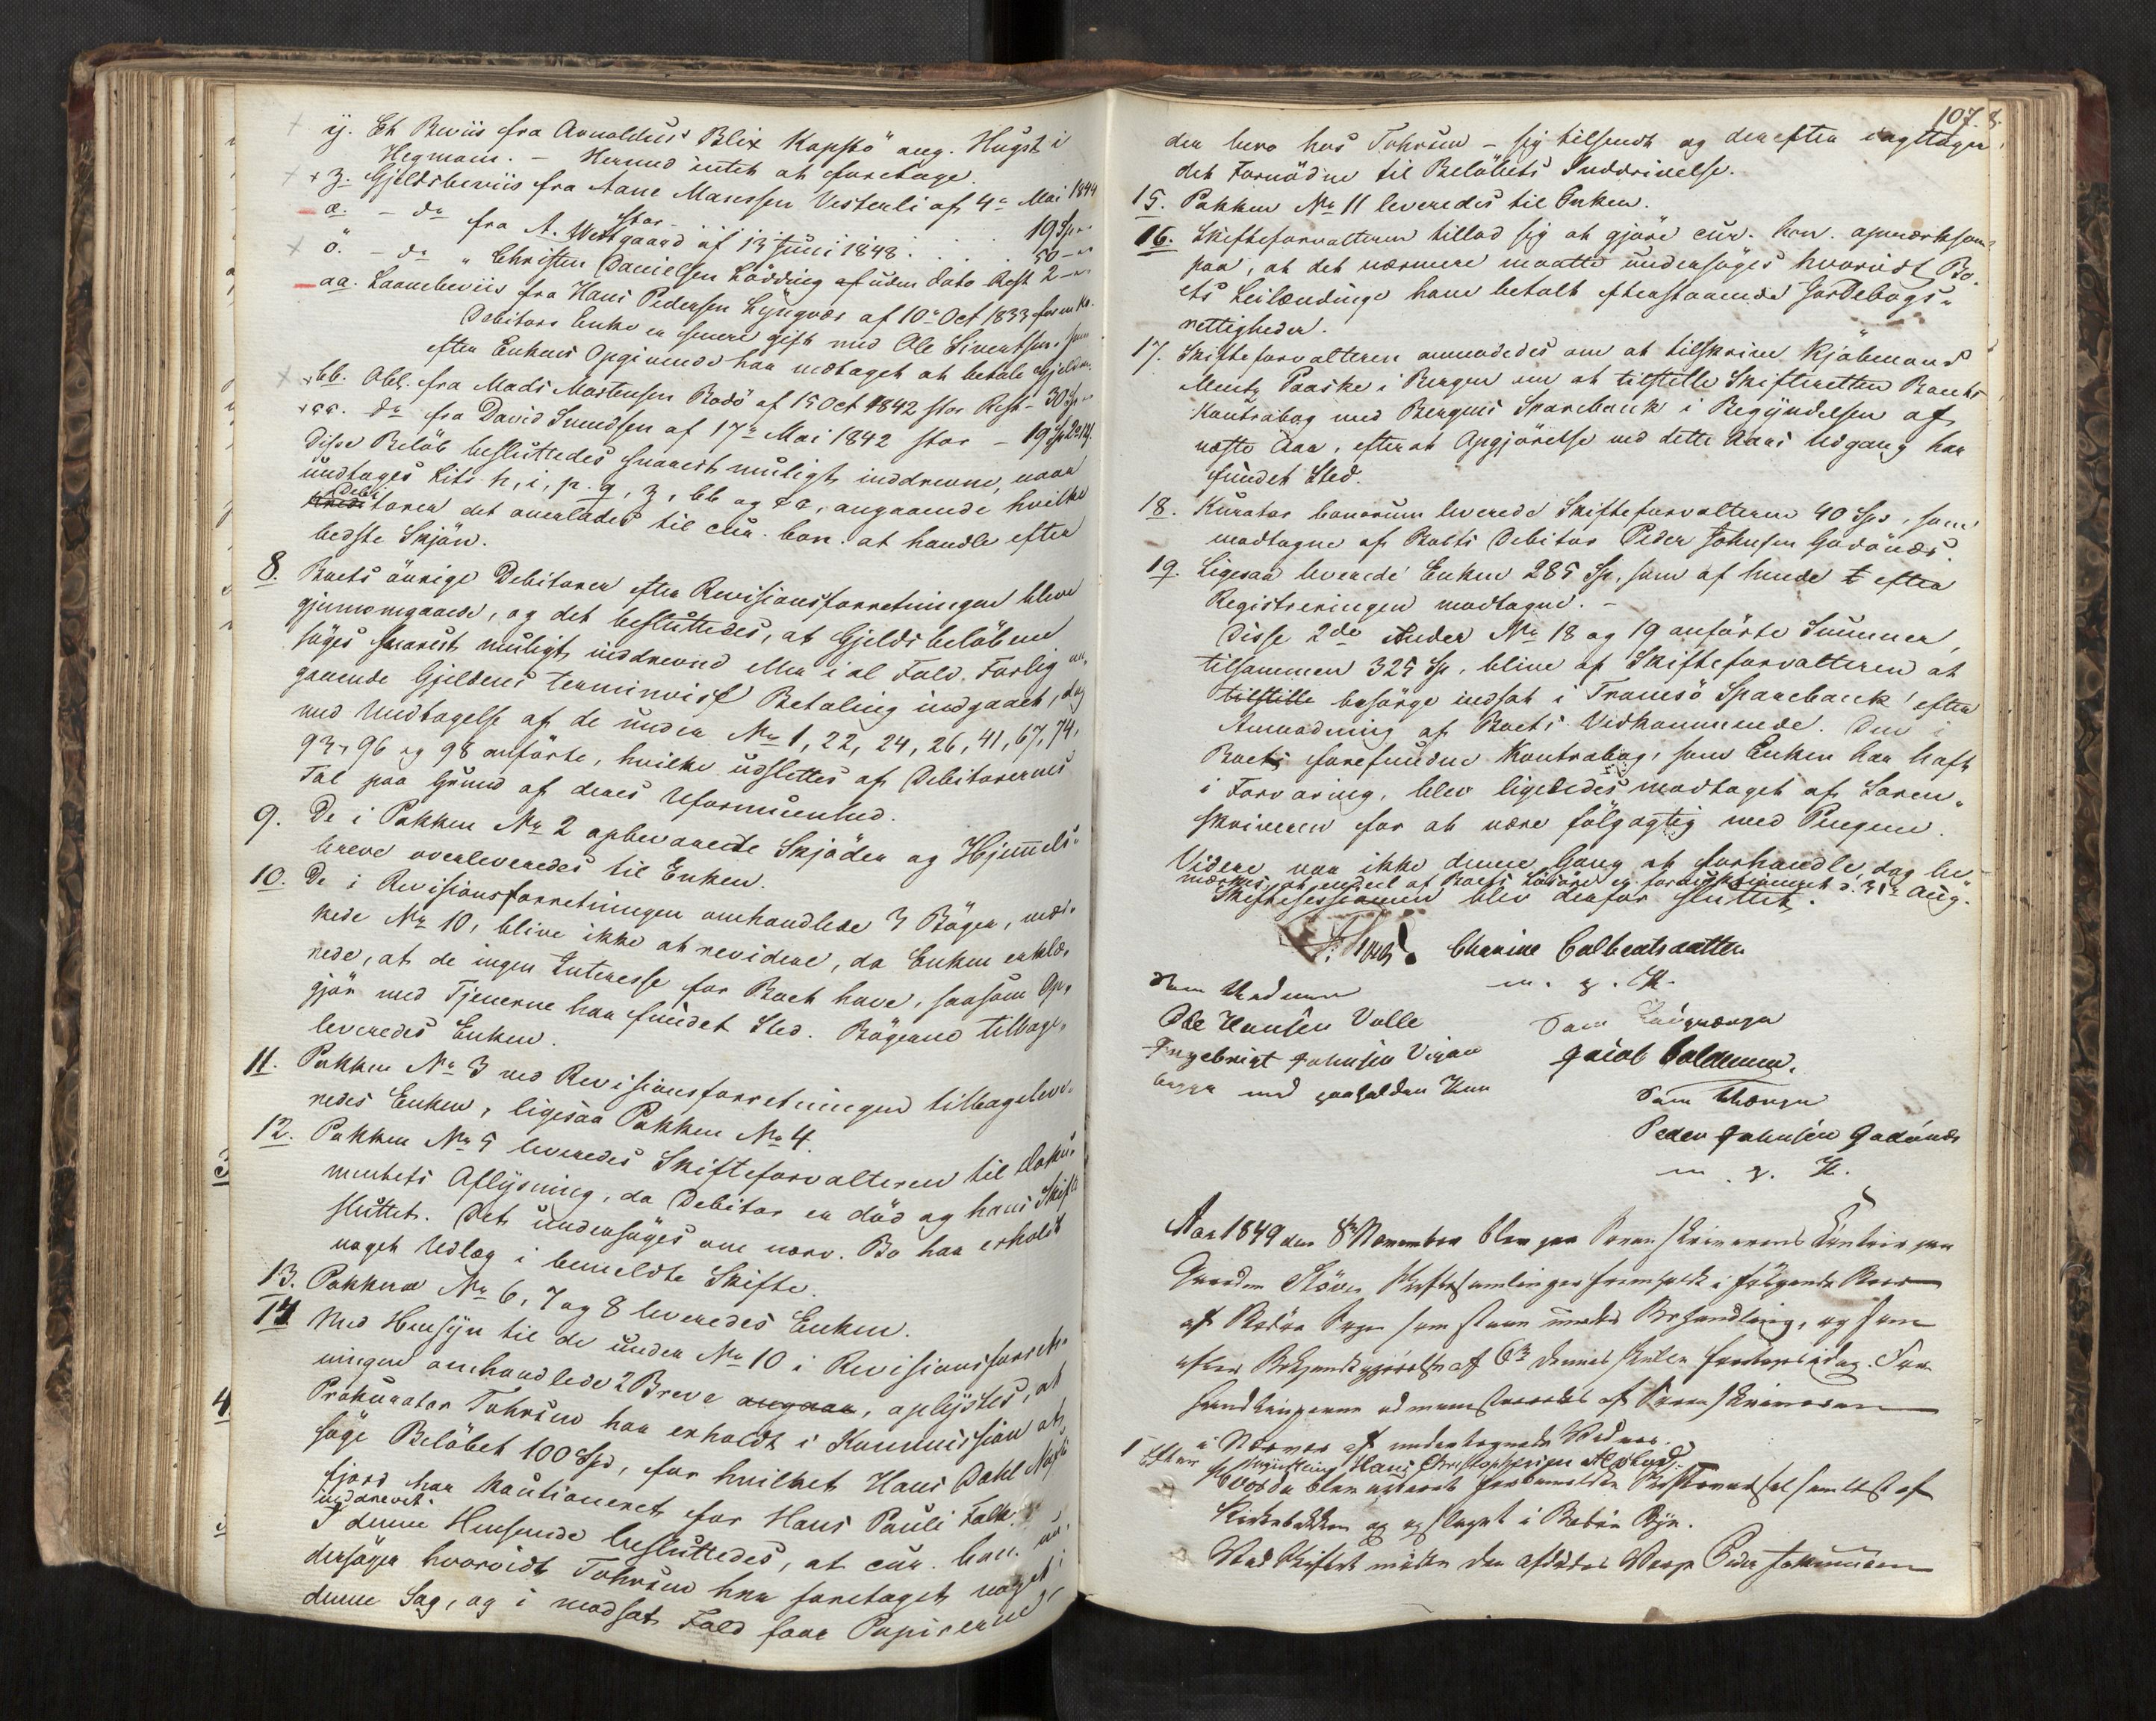 y. Et Beviis fra Arnoldus Blix Kopskö ang. Hugst i
Hegmoen. – Herved intet at foretage.
z. Gjeldsbeviis fra Aane Maressen Vesterli af 4de Mai 1844
stor 19 Spd.
æ. – do fra A. Westgaard af 13 Juni 1848 . . . 50 –
ö. – do " Christen Danielsen Lödding af uden dato Rest 2 –
aa. Laanebeviis fra Hans Pedersen Lyngvær af 10de Oct 1833 for en Ko.
Debitors Enke er senere gift med Ole Sivertsen, som
efter Enkens Opgivende har vedtaget at betale Gjelden.
bb. Obl. fra Mads Mortensen Bodö af 15 Oct 1842 stor Rest – 30 Sp
cc. do fra David Svendsen af 17de Mai 1842 stor – 19 Sp
Disse Belöb besluttedes snarest muligt inddrevne, naar
undtages Litr. h, i, p. q, z, bb og cc, angaaende hvilke
Debitorer det overlades til cur. bon. at handle efter
bedste Skjön.
8. Boets övrige Debitorer efter Revisionsforretningen bleve
gjennemgaaede, og det besluttedes, at Gjeldsbelöbene
söges snarest muligt inddrevne eller i al Fald Forlig an-
gaaende Gjeldens terminvise Betaling indgaaet, dog
med Undtagelse af de under No 1, 22, 24, 26, 41, 67, 74,
93, 96 og 98 anförte, hvilke udslettes af Debitorernes
Tal paa Grund af deres Uformuenhed.
9. De i Pakken No 2 opbevarede Skjöder og Hjemmels-
breve overleveredes til Enken.
10. De i Revisionsforretningen omhandlede 3 Böger, mær-
kede No 10, blive ikke at revidere, da Enken erklæ-
rede, at de ingen Interesse for Boet have, saasom Op-
gjör med Tjenerne har fundet Sted. Bögerne tilbage-
leveredes Enken.
11. Pakken No 3 ved Revisionsforretningen tilbageleve-
redes Enken, ligesaa Pakken No 4.
12. Pakken No 5 leveredes Skifteforvalteren til Doku-
mentets Aflysning, da Debitor er död og hans Skifte
sluttet. Det undersöges om nærv. Bo har erholdt
noget Udlæg i bemeldte Skifte.
13. Pakkerne No 6, 7 og 8 leveredes Enken.
14. Med Hensyn til de under No 10 i Revisionsforret-
ningen omhandlede 2 Breve angaar, oplystes, at
Prokurator Tohrsen har erholdt i Kommission at
söge Belöbet 100 Spd, for hvilket Hans Dahl
fjord har kautioneret for Hans Pauli Falk
inddrevet.
I denne Henseende besluttedes, at cur. bon. un-
dersöger hvorvidt Tohrsen har foretaget noget i
denne Sag, og i modsat Fald faar Papirerne
107. 8.
der bero hos Tohrsen – sig tilsendt og derefter iagttager
det Fornödne til Belöbets Inddrivelse.
15. Pakken No 11 leveredes til Enken.
16. Skifteforvalteren tillod sig at gjöre cur. bon. opmærksom
paa, at det nærmere maatte undersöges hvorvidt Bo-
ets Leilændinge have betalt efterstaaende Jordebogs-
rettigheder.
17. Skifteforvalteren anmodedes om at tilskrive Kjöbmand
Mentz Paaske i Bergen om at tilstille Skifteretten Boets
Kontrabog med Bergens Sparebank i Begyndelsen af
næste Aar, efterat Opgjörelse ved dette Aars Udgang har
fundet Sted.
18. Kurator bonorum leverede Skifteforvalteren 40 Spd, som
modtagne af Boets Debitor Peder Johnsen Godönæs.
19. Ligesaa leverede Enken 285 Sp, som af hende efter
Registreringen modtagne. –
Disse 2de under No 18 og 19 anförte Summer,
tilsammen 325 Sp, blive af Skifteforvalteren at
tilstille besörge indsat i Tromsö Sparebank efter
Anmodning af Boets Vedkommende. Den i
Boet forefundne Kontrabog, som Enken har haft
i Forvaring, blev ligeledes modtaget af Soren-
skriveren for at være fölgagtig med Pengene.
Videre var ikke denne Gang at forhandle, dog be-
mærkes, at endeel af Boets Lösöre er d. 31te Aug.
Skiftesessionen blev derfor sluttet.
Charine Colbentsdatter
m. p. P.
Som Vidner
Ole Hansen Valle
Ingebrigt Johnsen Vigan
begge med paaholden Pen
Som Laugværge
Jacob Coldevin.
Som Værge
Peder Johnsen Godönæs
m. p. P.
Aar 1849 den 8de November blev paa Sorenskriverens Contoir paa
Gaarden Stöver Skiftesamlinger fremholdt i fölgende Boer
af Bodöe Sogn som staae under Behandling, og som
efter Bekjendtgjörelse af 6te dennes skulle foretages idag. For-
handlingerne administreredes af Sorenskriveren
i Nærvær af undertegnede Vidner.
1 Efter Hans Christophersen Alstad.
Hvorda blev
Kirkebakken og opslaget i Bodöe Bye.
Ved Skiftet mödte den afdödes Værge Peder Johnsen